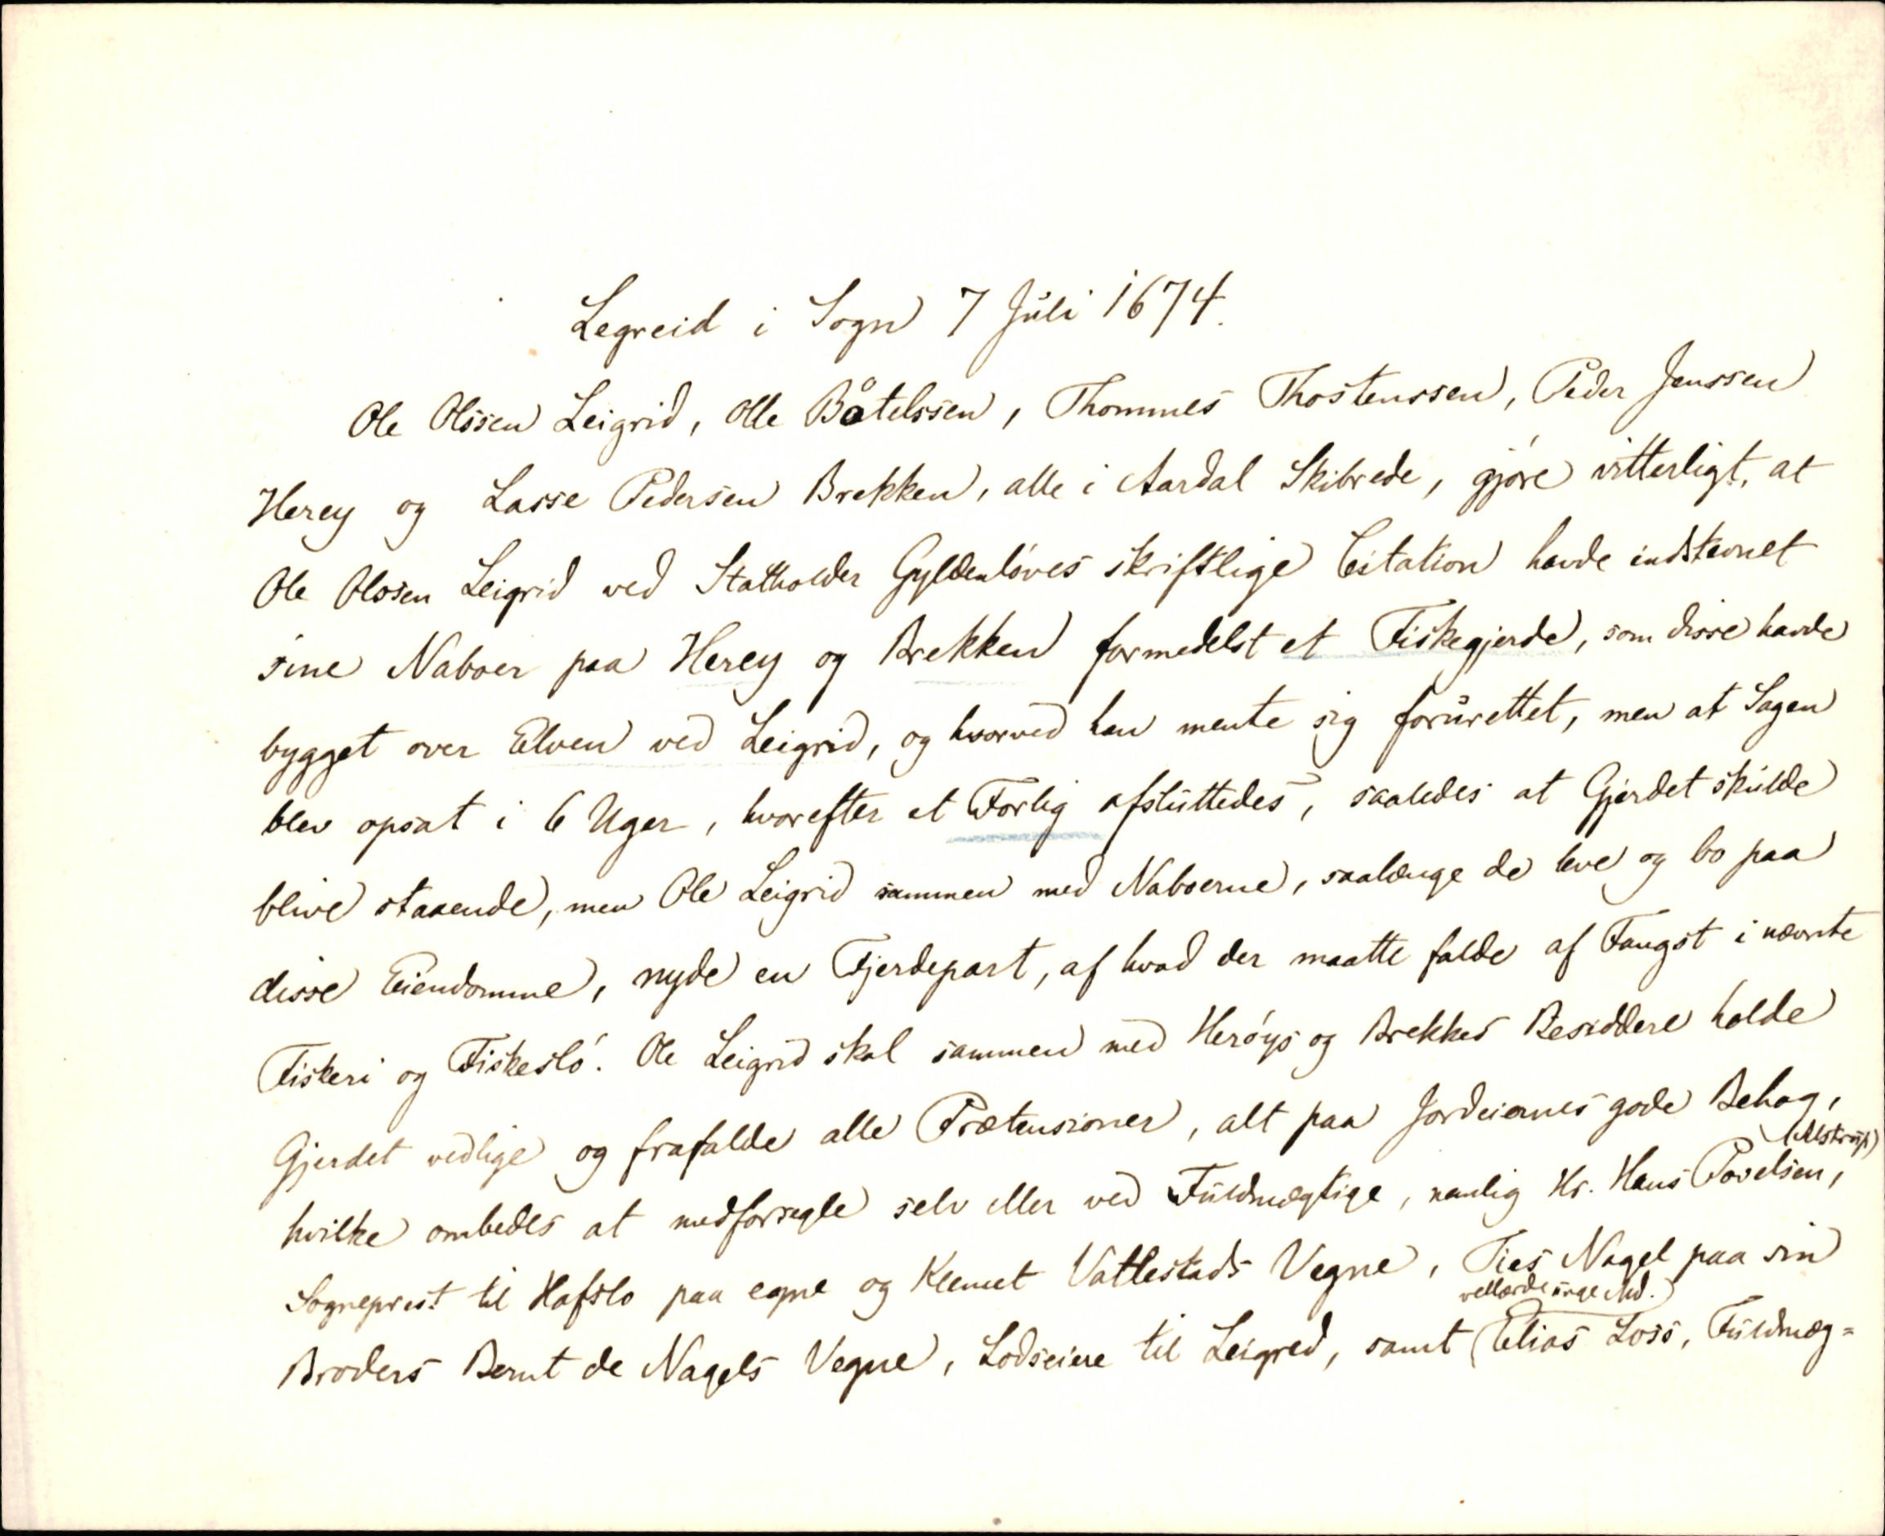 Legreid i Sogn 7 Juli 1674.
Ole Olssen Leigrid, Olle Båtelssen, Thommes Thostenssen, Peder Jenssen
Herey og Lasse Pedersen Brekken, alle i Aardal Skibrede, gjøre vitterligt, at
Ole Olssen Leigrid ved Statholder Gyldenløves skriftlige Citation havde indstevnet
sine Naboer paa Herey og Brekken formedelst et Fiskegjerde, som disse havde
bygget over Elven ved Leigrid, og hvorved han mente sig forurettet, men at Sagen
blev opsat i 6 Uger, hvorefter et Forlig afsluttedes, saaledes at Gjerdet skulde
blive staaende, men Ole Leigrid sammen med Naboerne, saalænge de leve og bo paa
disse Eiendomme, nyde en Fjerdepart, af hvad der maatte falde af Fangst i nævnte
Fiskeri og Fiskesló. Ole Leigrid skal sammen med Herøys og Brekkes Besiddere holde
Gjerdet vedlige og frafalde alle Prætensioner, alt paa Jordeiernes gode Behag,
hvilke ombedes at medforsegle selv eller ved Fuldmægtige, nemlig Hr. Hans Povelsen, (Alstrup)
Sogneprest til Hafslo paa egne og Klemet Vattestads Vegne, Ties Nagel paa sin
Broders Bernt de Nagels Vegne, Lodseiere til Leigred, samt (vellærde unge Md.) Elias Loss, Fuldmæg=